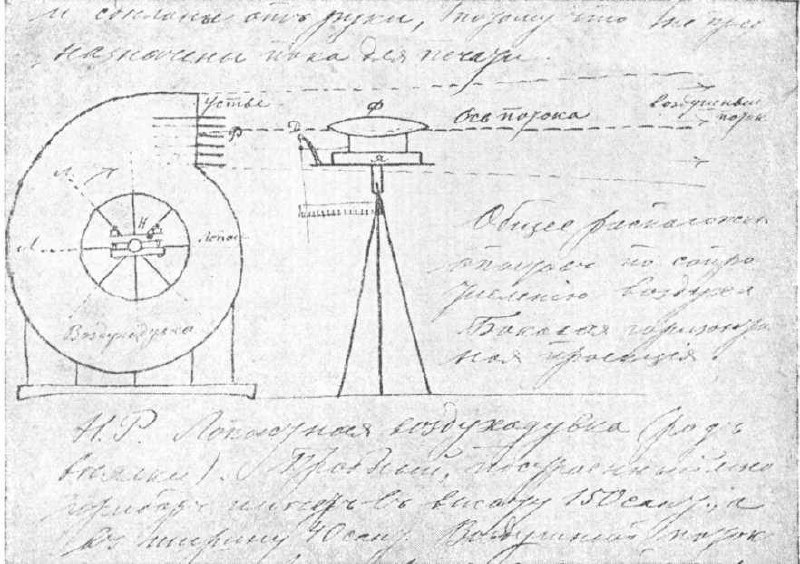 и отъ руки, потому что не пред
назначены пока для печати.
Устье
Ф
Воздушный
поток
Д
Ось потока
Л
Н
Л
Лопас
Воздуходувка
Общее расположен
по сопро
тивленію воздуха
Боковая горизонта
ная проекція.
Н.Р. Лопастная воздуходувка (родъ
вѣялки). Пробный, построенный мно
приборъ имѣетъ въ высоту 150 сант., а
въ ширину 40 сант. Воздушный поток